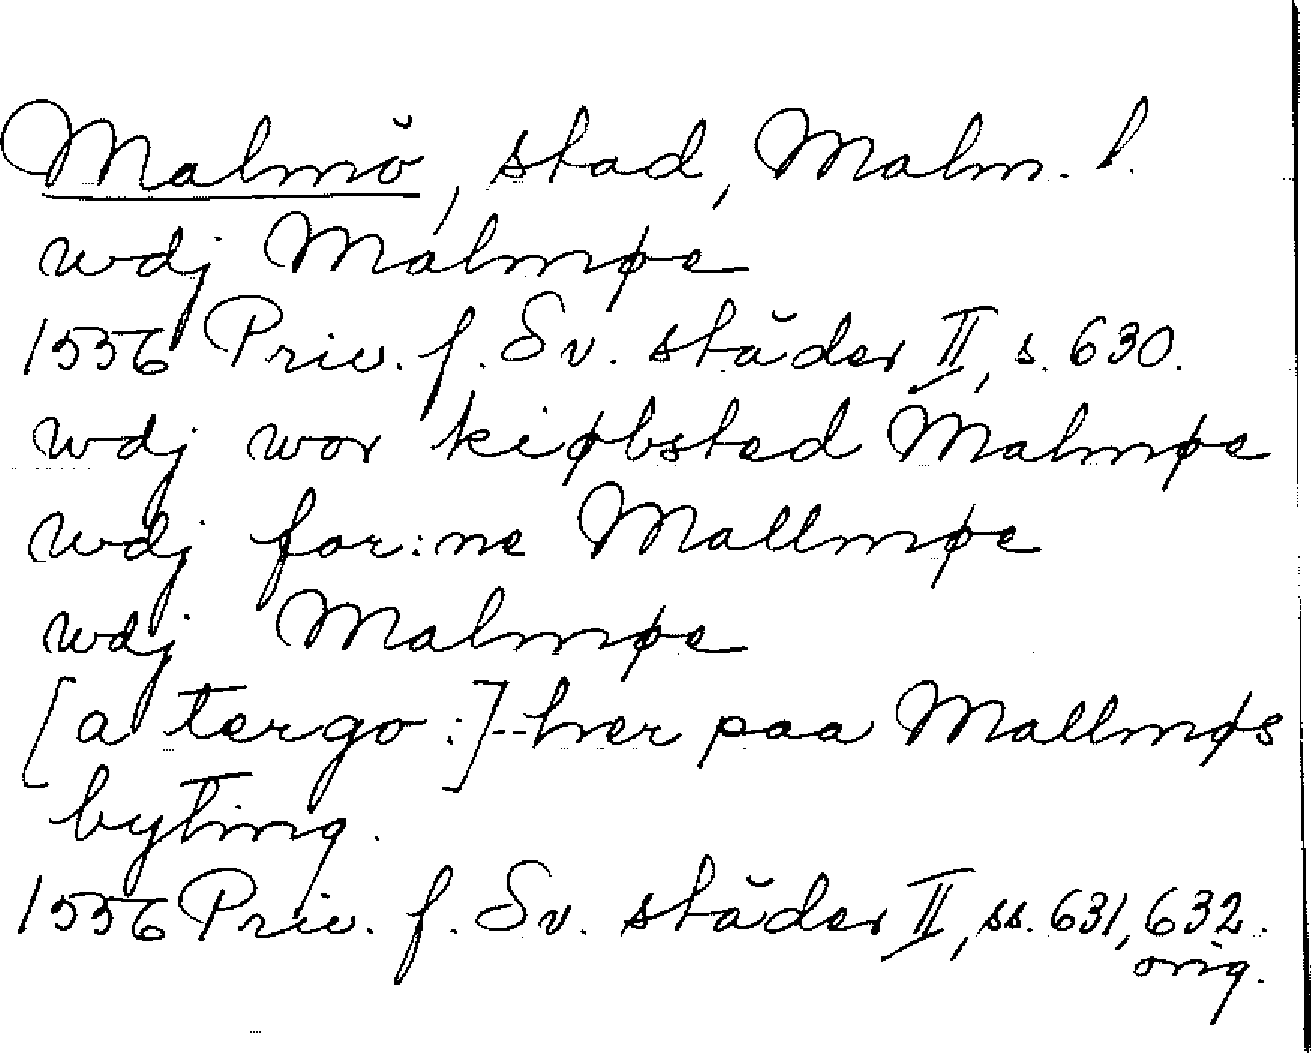 Malmö, stad, Malm. l.
wdj Malmøe
1556 Priv. f. Sv. städer II, s. 630.
wdj wor kiøbsted Malmøe
wdj for:ne Mallmøe
wdj Malmøe
[a tergo:] her paa Mallmøs
byting.
1556 Priv. f. Sv. städer II, ss. 631, 632.
orig.